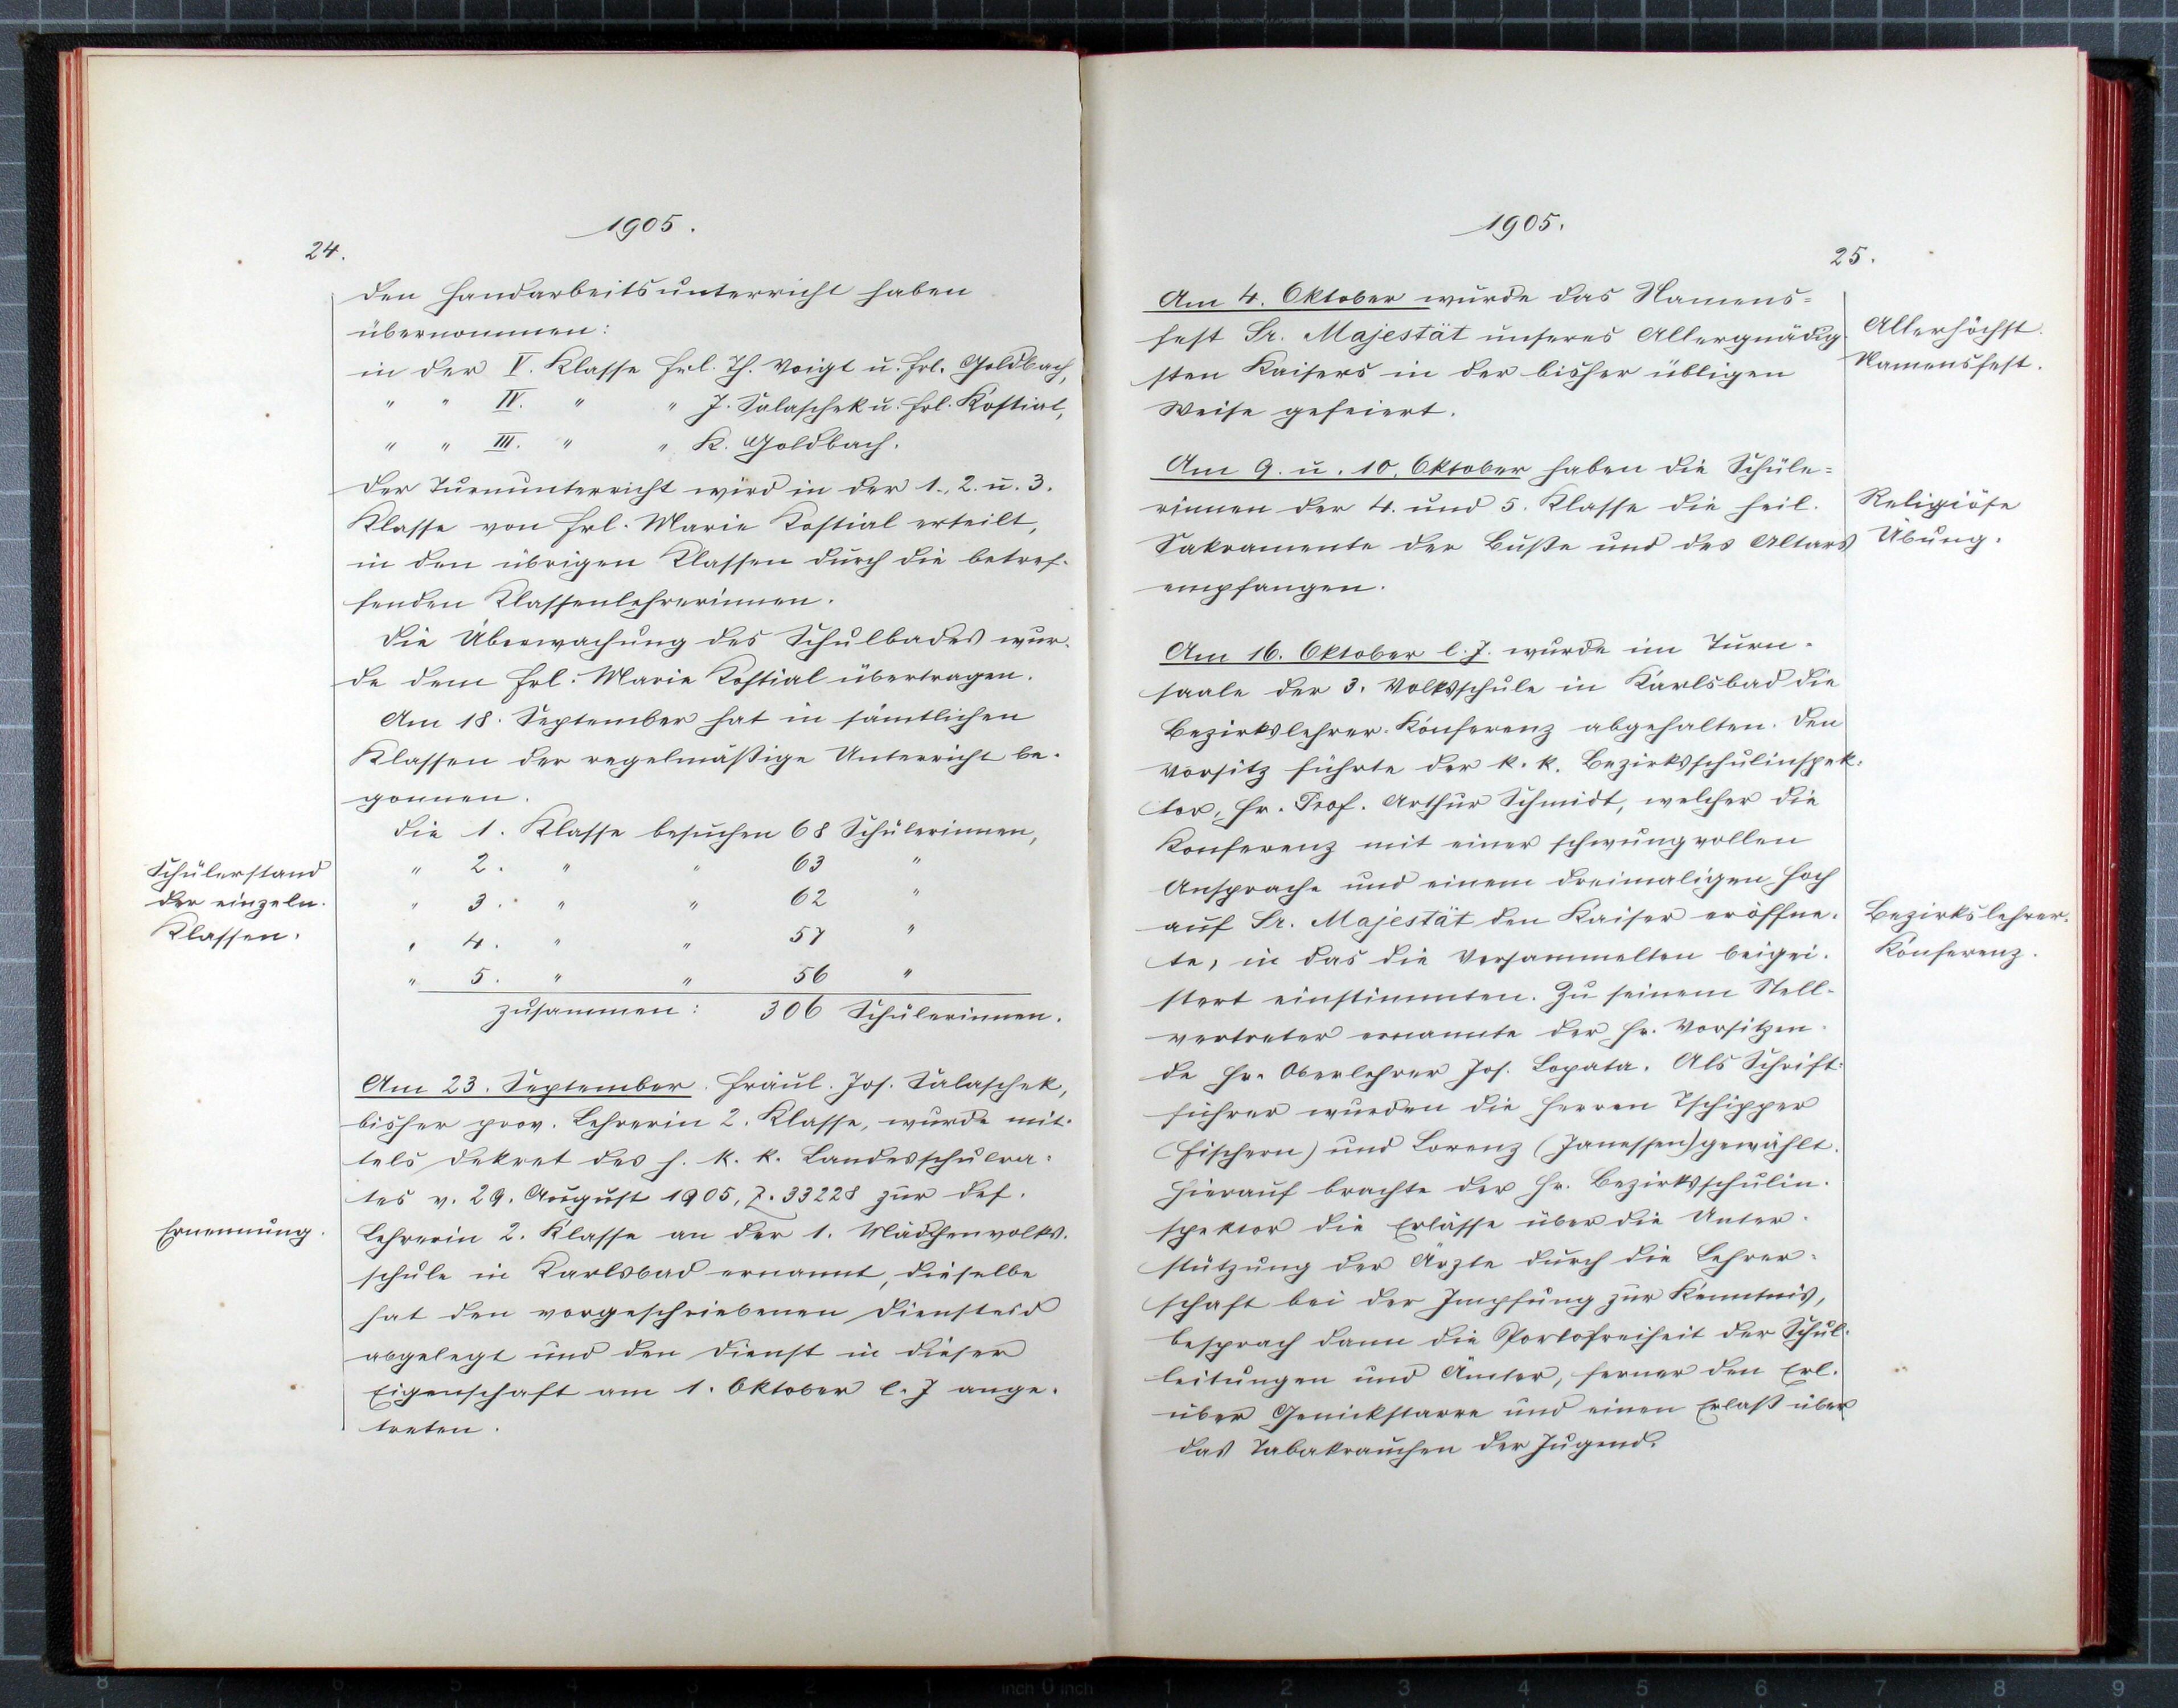 1905.
24.
Den Handarbeitsunterricht haben
übernommen:
in der V. Klasse Frl. Th. Voigt u. Frl. Goldbach,
" " IV. " " J. Salaschek u. Frl. Kostial,
" " III. " " K. Goldbach.
Der Turnunterricht wird in der 1., 2. u. 3.
Klasse von Frl. Marie Kostial erteilt,
in den übrigen Klassen durch die betref-
fenden Klassenlehrerinnen.
Die Überwachung des Schulbades wur-
de dem Frl. Marie Kostial übertragen.
Am 18. September hat in sämtlichen
Klassen der regelmäßige Unterricht be-
gonnen.
Die 1. Klasse besuchen 68 Schülerinnen,
" 2. " " 63 "
" 3. " " 62 "
" 4. " " 57 "
" 5. " " 56 "
zusammen: 306 Schülerinnen.
Schülerstand
der einzeln.
Klassen.
Am 23. September. Fräul. Jos. Salaschek,
bisher prov. Lehrerin 2. Klasse, wurde mit-
tels Dekret des h. k. k. Landesschulra-
tes v. 29. August 1905, Z. 33228 zur def.
Lehrerin 2. Klasse an der 1. Mädchenvolks-
schule in Karlsbad ernannt, dieselbe
hat den vorgeschriebenen Diensteid
abgelegt und den Dienst in dieser
Eigenschaft am 1. Oktober l. J ange-
treten.
Ernennung.
1905.
25.
Am 4. Oktober wurde das Namens=
fest Sr. Majestät unseres Allergnädig-
sten Kaisers in der bisher übligen
Weise gefeiert.
Allerhöchst.
Namensfest.
Am 9. u. 10. Oktober haben die Schüle=
rinnen der 4. und 5. Klasse die heil.
Sakramente der Buße und des Altars
empfangen.
Religiöse
Übung.
Am 16. Oktober l. J. wurde im Turn-
saale der 3. Volksschule in Karlsbad die
Bezirkslehrer-Konferenz abgehalten. Den
Vorsitz führte der k. k. Bezirksschulinspek-
tor, Hr. Prof. Arthur Schmidt, welcher die
Konferenz mit einer schwungvollen
Ansprache und einem dreimaligen Hoch
auf Sr. Majestät den Kaiser eröffne-
te, in das die Versammelten beigei-
stert einstimmten. Zu seinem Stell-
vertreter ernannte der Hr. Vorsitzen-
de Hr. Oberlehrer Jos. Lopata. Als Schrift-
führer wurden die Herren Tschipper
(Fischern) und Lorenz (Janessen) gewählt.
Hierauf brachte der Hr. Bezirksschulin-
spektor die Erlässe über die Unter-
stützung der Ärzte durch die Lehrer-
schaft bei der Impfung zur Kenntnis,
besprach dann die Portofreiheit der Schul-
leitungen und Ämter, ferner den Erl.
über Genickstarre und einen Erlaß über
das Tabakrauchen der Jugend.
Bezirkslehrer-
Konferenz.
8 7 6 5 4 3 2 1 inch 0 inch 1 2 3 4 5 6 7 8 9